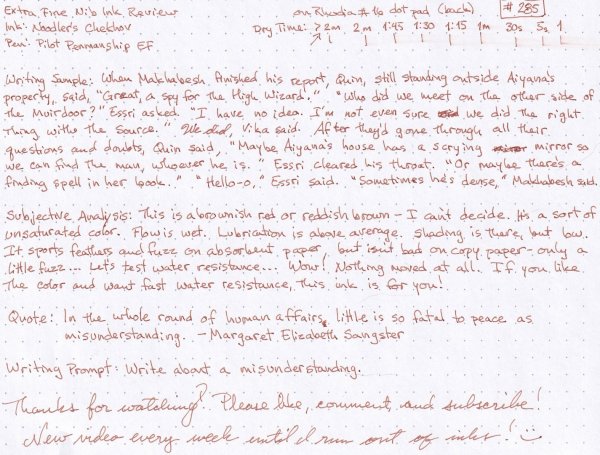 Extra Fine Nib Ink Review
on Rhodia #16 dot pad (back)
#285
Ink: Noodler's Chekhov
Dry Time: >2m 2m 1:45 1:30 1:15 1m 30s 5s 1
Pen: Pilot Penmanship EF
Writing Sample: When Makhabesh finished his report, Quin, still standing outside Aiyana's
property, said, "Great, a spy for the High Wizard." "Who did we meet on the other side of
the Muirdoor?" Essri asked. "I have no idea. I'm not even sure we did the right
thing with the Source." We did, Vika said. After they'd gone through all their
questions and doubts, Quin said, "Maybe Aiyana's house has a scrying mirror so
we can find the man, whoever he is." Essri cleared his throat. "Or maybe there's a
finding spell in her book." "Hello-o," Essri said. "Sometimes he's dense," Makhabesh said.
Subjective Analysis: This is a brownish red or reddish brown - I can't decide. It's a sort of
unsaturated color. Flow is wet. Lubrication is above average. Shading is there, but low.
It sports feathers and fuzz on absorbent paper, but isn't bad on copy paper - only a
little fuzz... Let's test water resistance... Wow! Nothing moved at all. If you like
the color and want fast water resistance, this ink is for you!
Quote: In the whole round of human affairs, little is so fatal to peace as
misunderstanding. - Margaret Elizabeth Sangster
Writing Prompt: Write about a misunderstanding.
Thanks for watching! Please like, comment, and subscribe!
New video every week until I run out of inks!